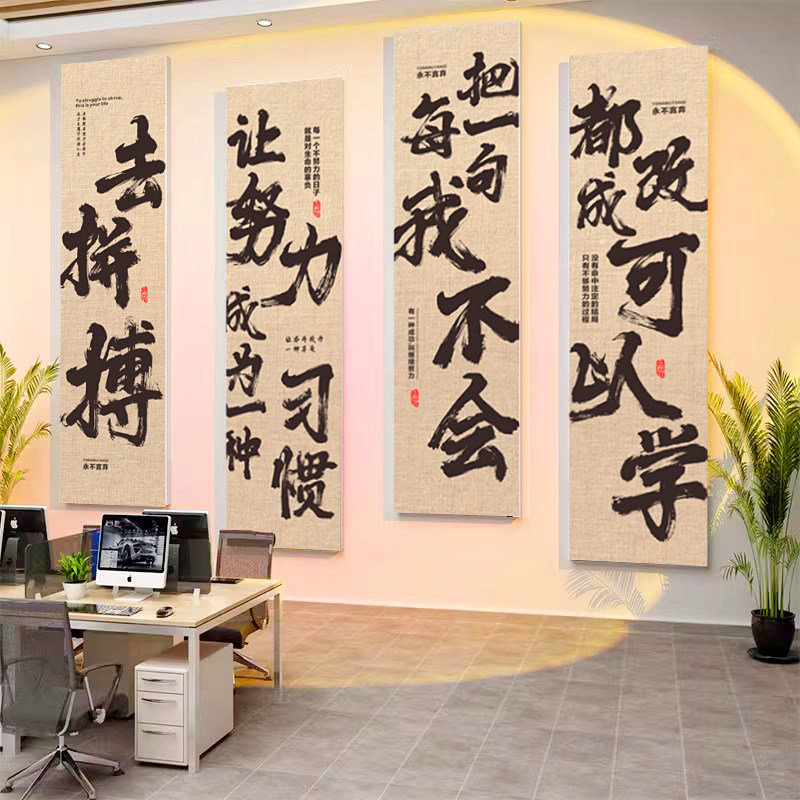 To struggle to strive,
this is your life
去拼搏
YONGBUYANQI
永不言弃
让努力
成为一种
习惯
每一个不努力的日子
就是对生命的辜负
YONGBUYANQI
永不言弃
把每一句
我不会
有一种成功,叫继续努力
YONGBUYANQI
永不言弃
都改成
可以学
没有命中注定的结局
只有不够努力的过程